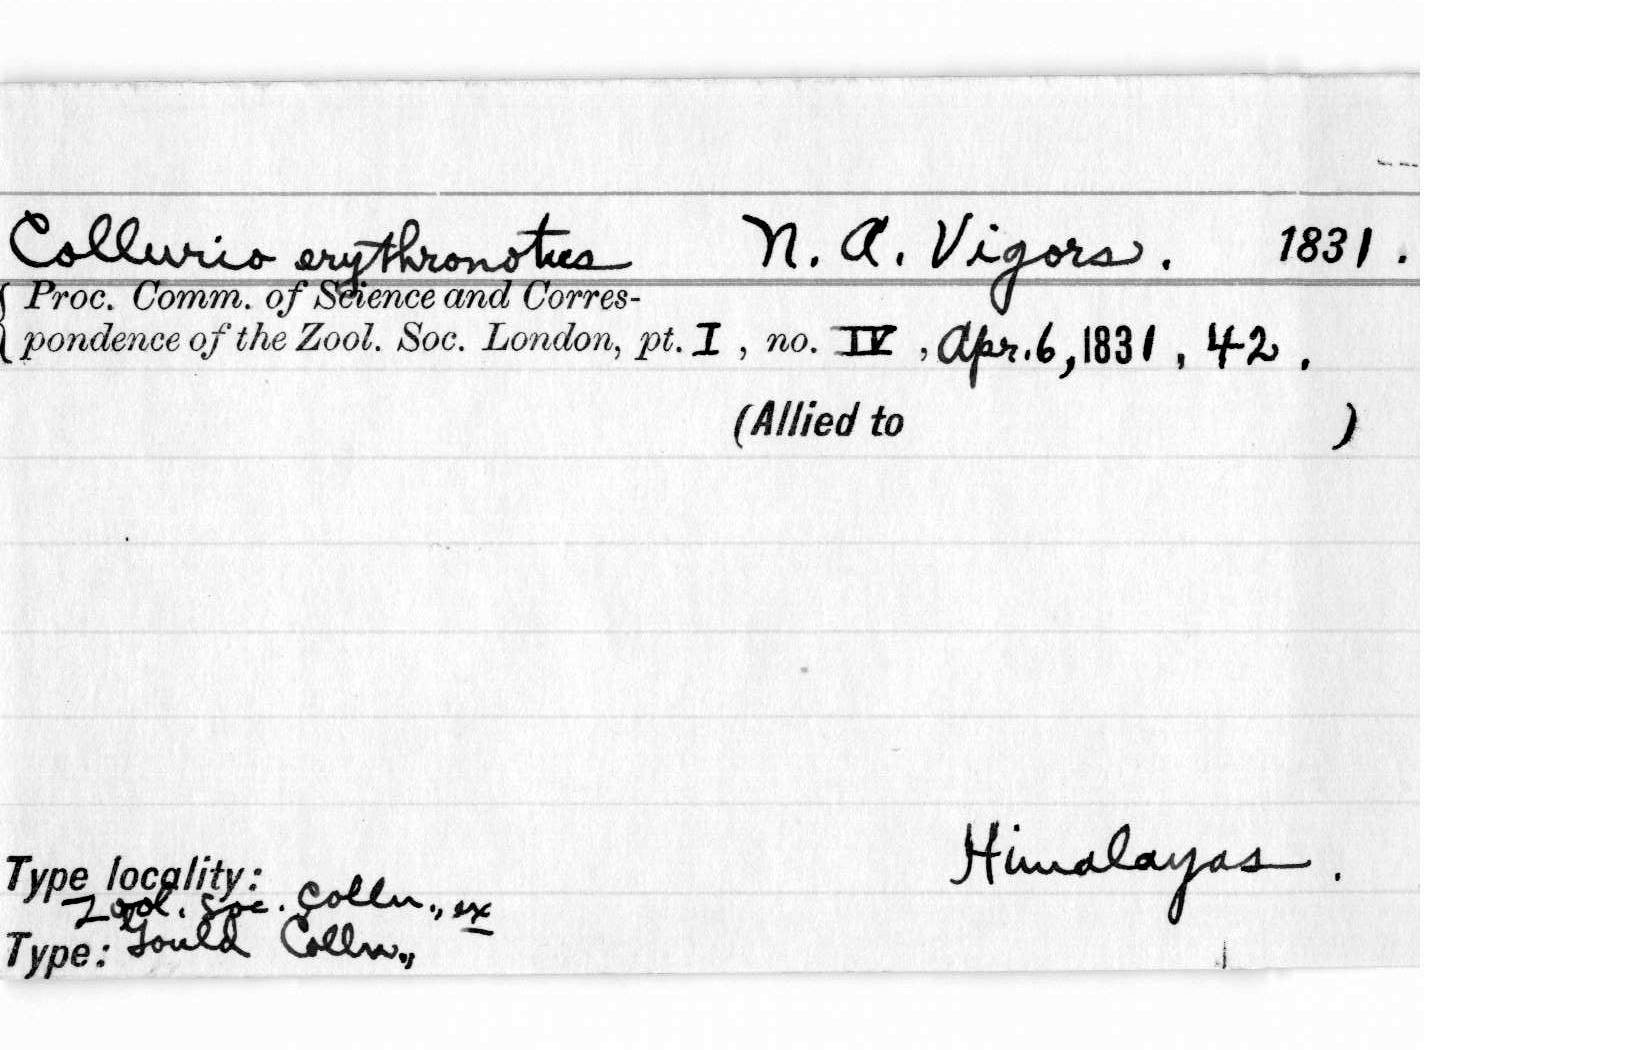 Collurio erythronotus N. A. Vigors. 1831.
Proc. Comm. of Science and Corres-
pondence of the Zool. Soc. London, pt. I, no. IV, Apr. 6, 1831, 42.
(Allied to )
Himalayas.
Type locality:
Zool. Soc. Colln., ex
Type: Gould Colln.,